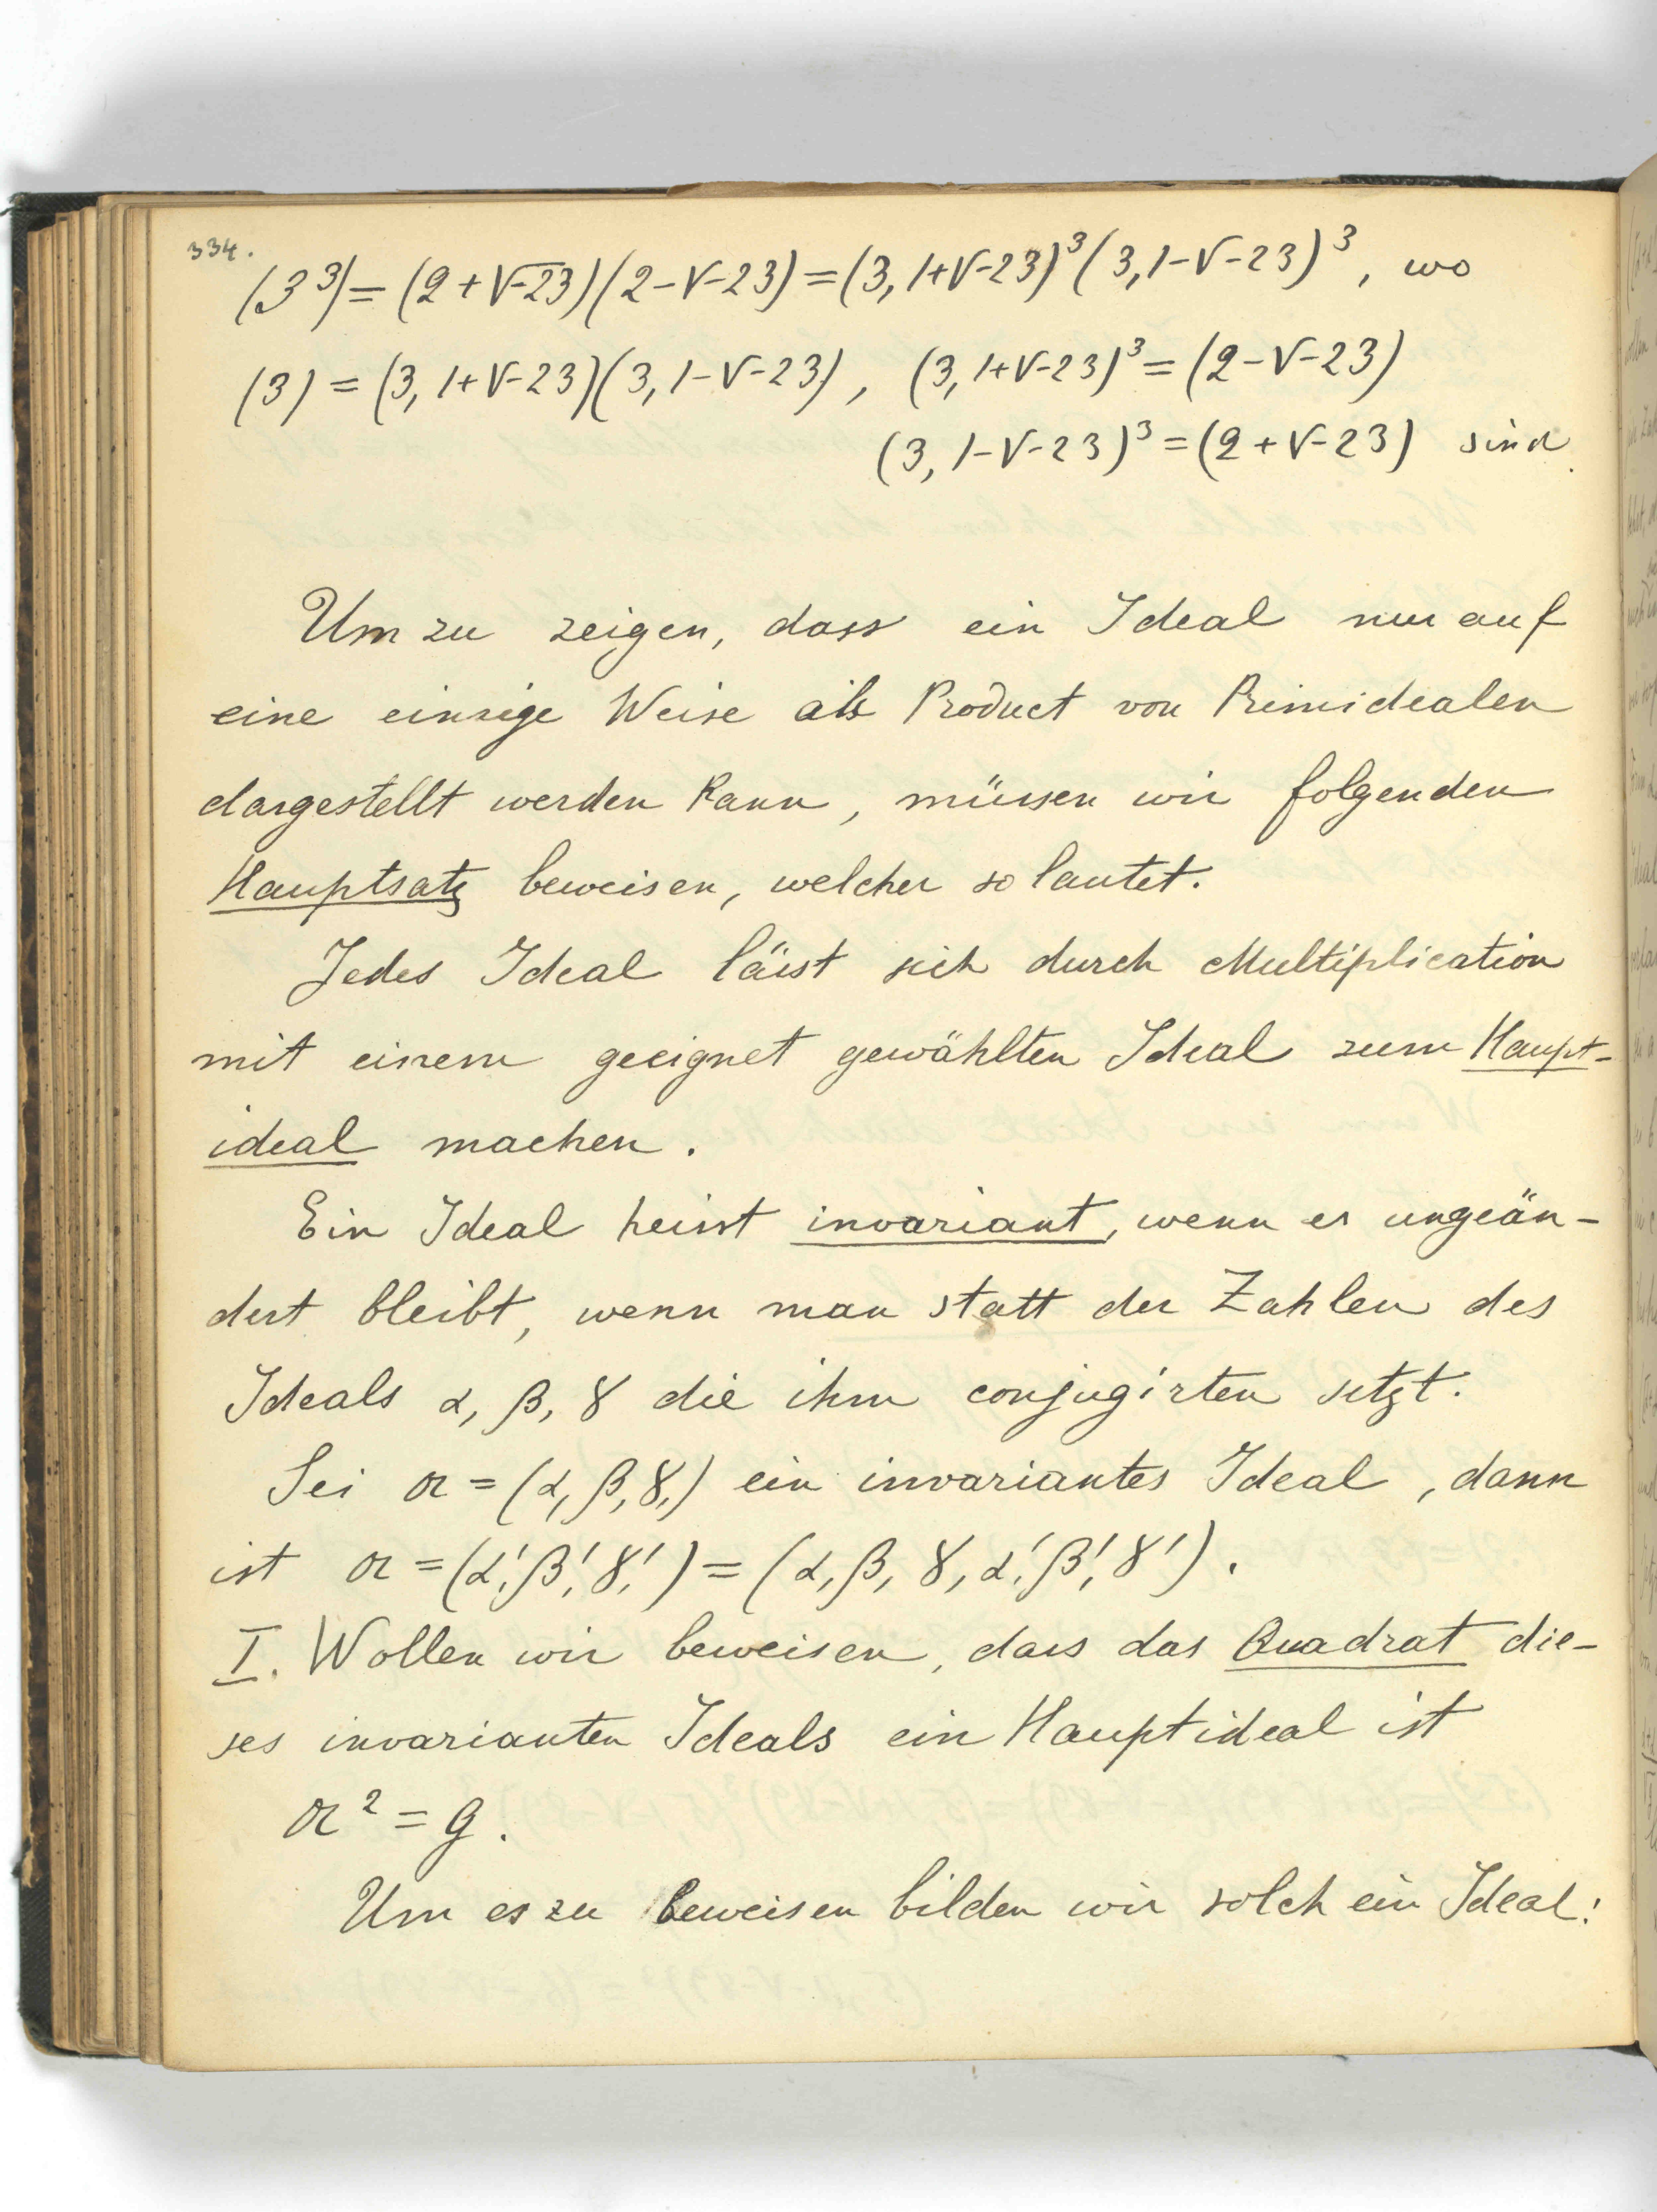 334.
(3³) = (2+√-23)(2-√-23) = (3, 1+√-23)³(3, 1-√-23)³, wo
(3) = (3, 1+√-23)(3, 1-√-23), (3, 1+√-23)³ = (2-√-23)
(3, 1-√-23)³ = (2+√-23) sind.
Um zu zeigen, dass ein Ideal nur auf
eine einzige Weise als Product von Primidealen
dargestellt werden kann, müssen wir folgenden
Hauptsatz beweisen, welcher so lautet.
Jedes Ideal lässt sich durch Multiplication
mit einem geeignet gewählten Ideal zum Haupt-
ideal machen.
Ein Ideal heisst invariant, wenn es ungeän-
dert bleibt, wenn man statt der Zahlen des
Ideals α, β, γ die ihm conjugirten setzt.
Sei 𝔞 = (α, β, γ,) ein invariantes Ideal, dann
ist 𝔞 = (α', β', γ',) = (α, β, γ, α', β', γ').
I. Wollen wir beweisen, dass das Quadrat die-
ses invarianten Ideals ein Hauptideal ist
𝔞² = g.
Um es zu beweisen bilden wir solch ein Ideal: